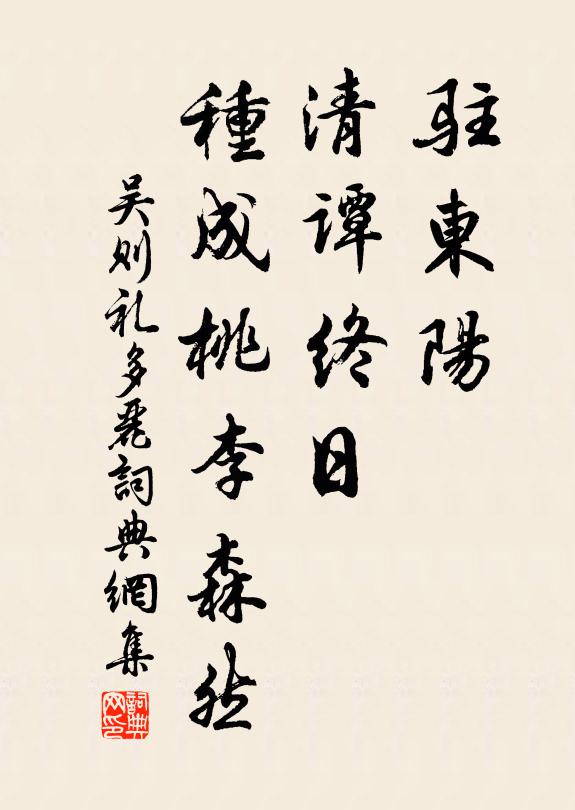 駐東陽
清譚終日
種成桃李森然
吴则礼多麗詞典網集
詞典网印